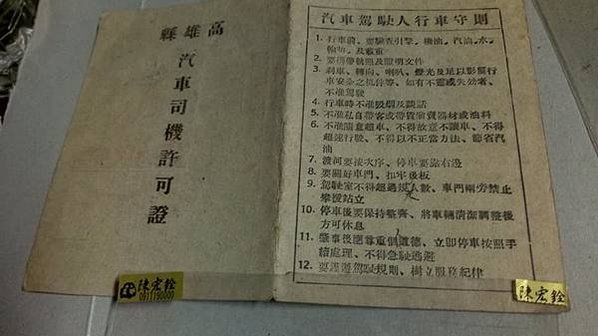 高雄縣
汽車司機許可證
汽車駕駛人行車守則
1. 行車前、要驗查引擎、機油、汽油、水、
輪胎、及載重
2. 要携帶執照及證明文件
3. 刹車、轉向、喇叭、燈光及足以影响行
車安全之机件等、如有不靈或失效者、
不准駕駛
4. 行車時不准吸烟及談話
5. 不准私自帶客或帶貨偷賣器材或油料
6. 不准隨意超車、不得故意不讓車、不得
超速行駛、不得以不正當方法、節省汽
油
7. 渡河要按次序、停車要靠右邊
8. 要關好車門、扣牢後板
9. 駕駛室不得超過人數、車門兩旁禁止
攀援站立
10. 停車後要保持整齊、將車輛清潔調整後
方可休息
11. 肇事後應尊重道德、立即停車按照手
續處理、不得急駛逃避
12. 要遵避駕駛規則、樹立服務紀律
陳宏銓
陳宏銓